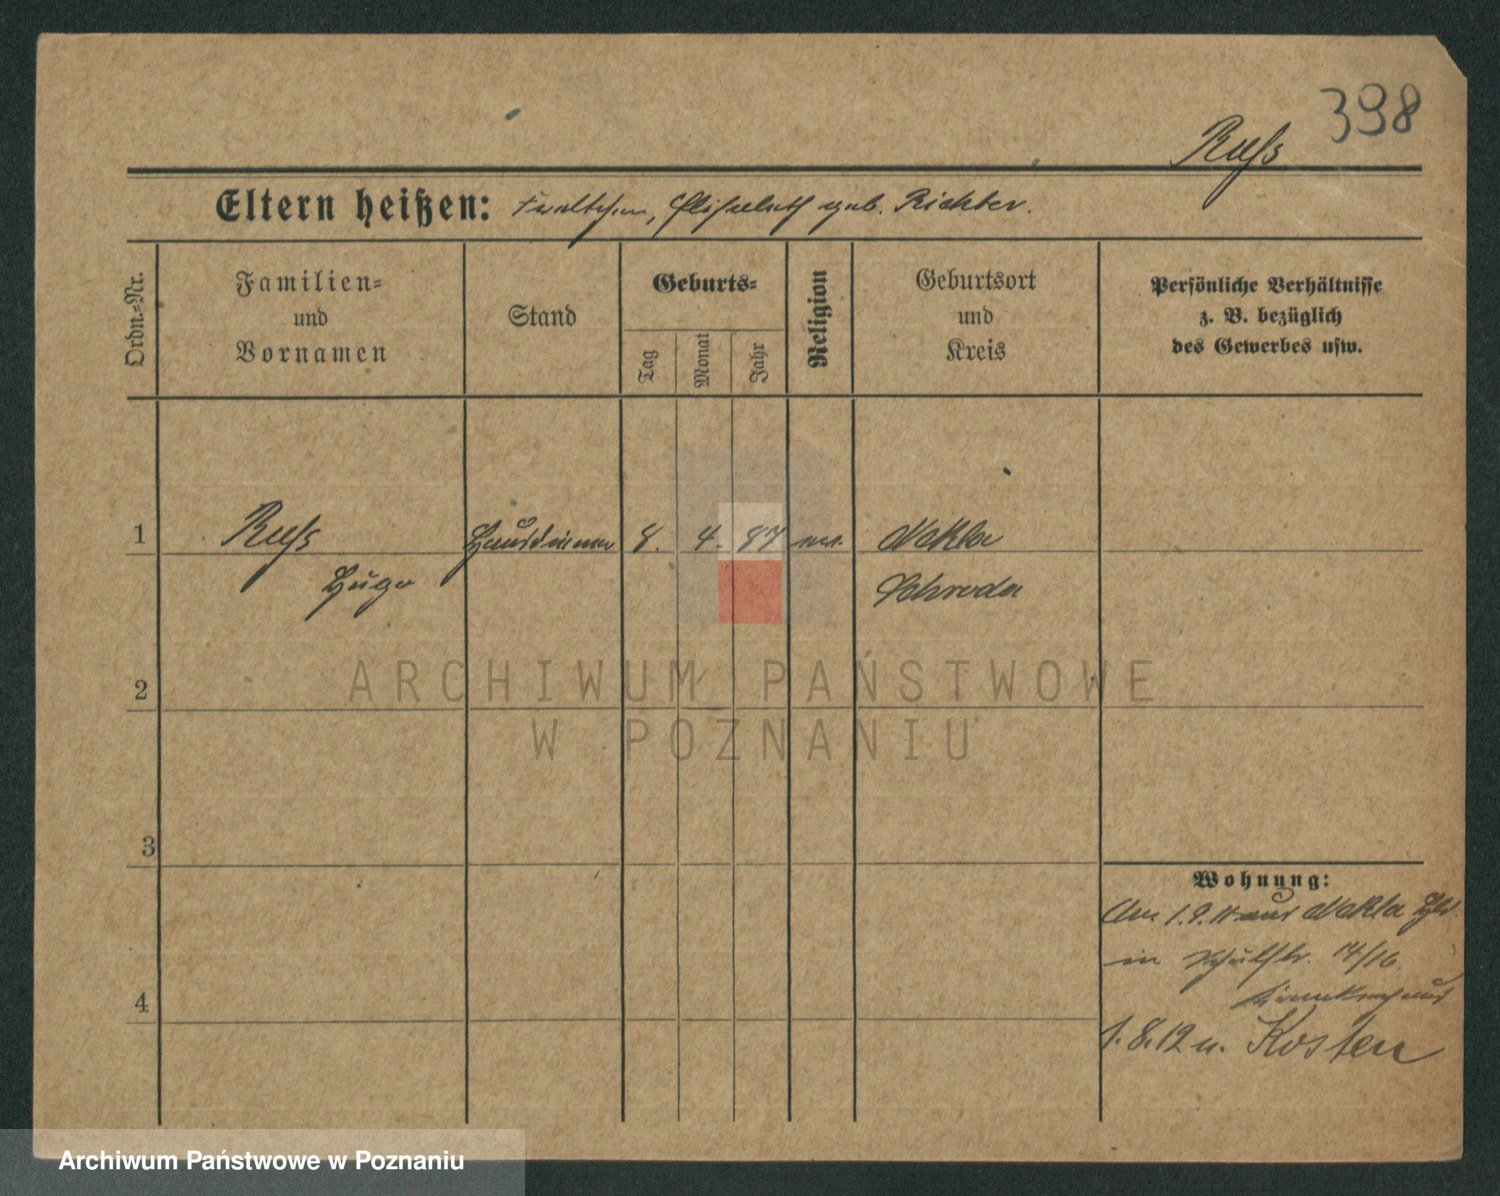 398
Ruſs
Eltern heißen: Elisabeth geb. Richter.
Ordn.=Nr.
Familien=
und
Vornamen
Stand
Geburts=
Tag
Monat
Jahr
Religion
Geburtsort
und
Kreis
Persönliche Verhältnisse
z. B. bezüglich
des Gewerbes usw.
1 Ruſs Hausdiener 8. 4. 87 ev. Nekla
Hugo Schroda
2
3
4
Wohnung:
Am 1.9.11 aus Nekla
in Schulstr. 14/16.
Krankenhaus
1.8.12 n. Kosten
ARCHIWUM PAŃSTWOWE
W POZNANIU
Archiwum Państwowe w Poznaniu